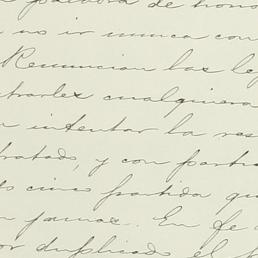 palabra de hono
no ir nunca con
Renuncian las le
trarles cualquiera
intentar la res
tratado, y con parti
cinco partida qu
jamas. En fe d
por duplicado el p